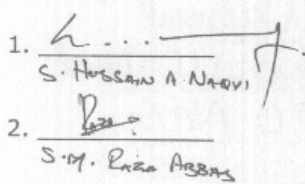 1.
S. HUSSAIN A. NAQVI
2. Raza
S.M. RAZA ABBAS